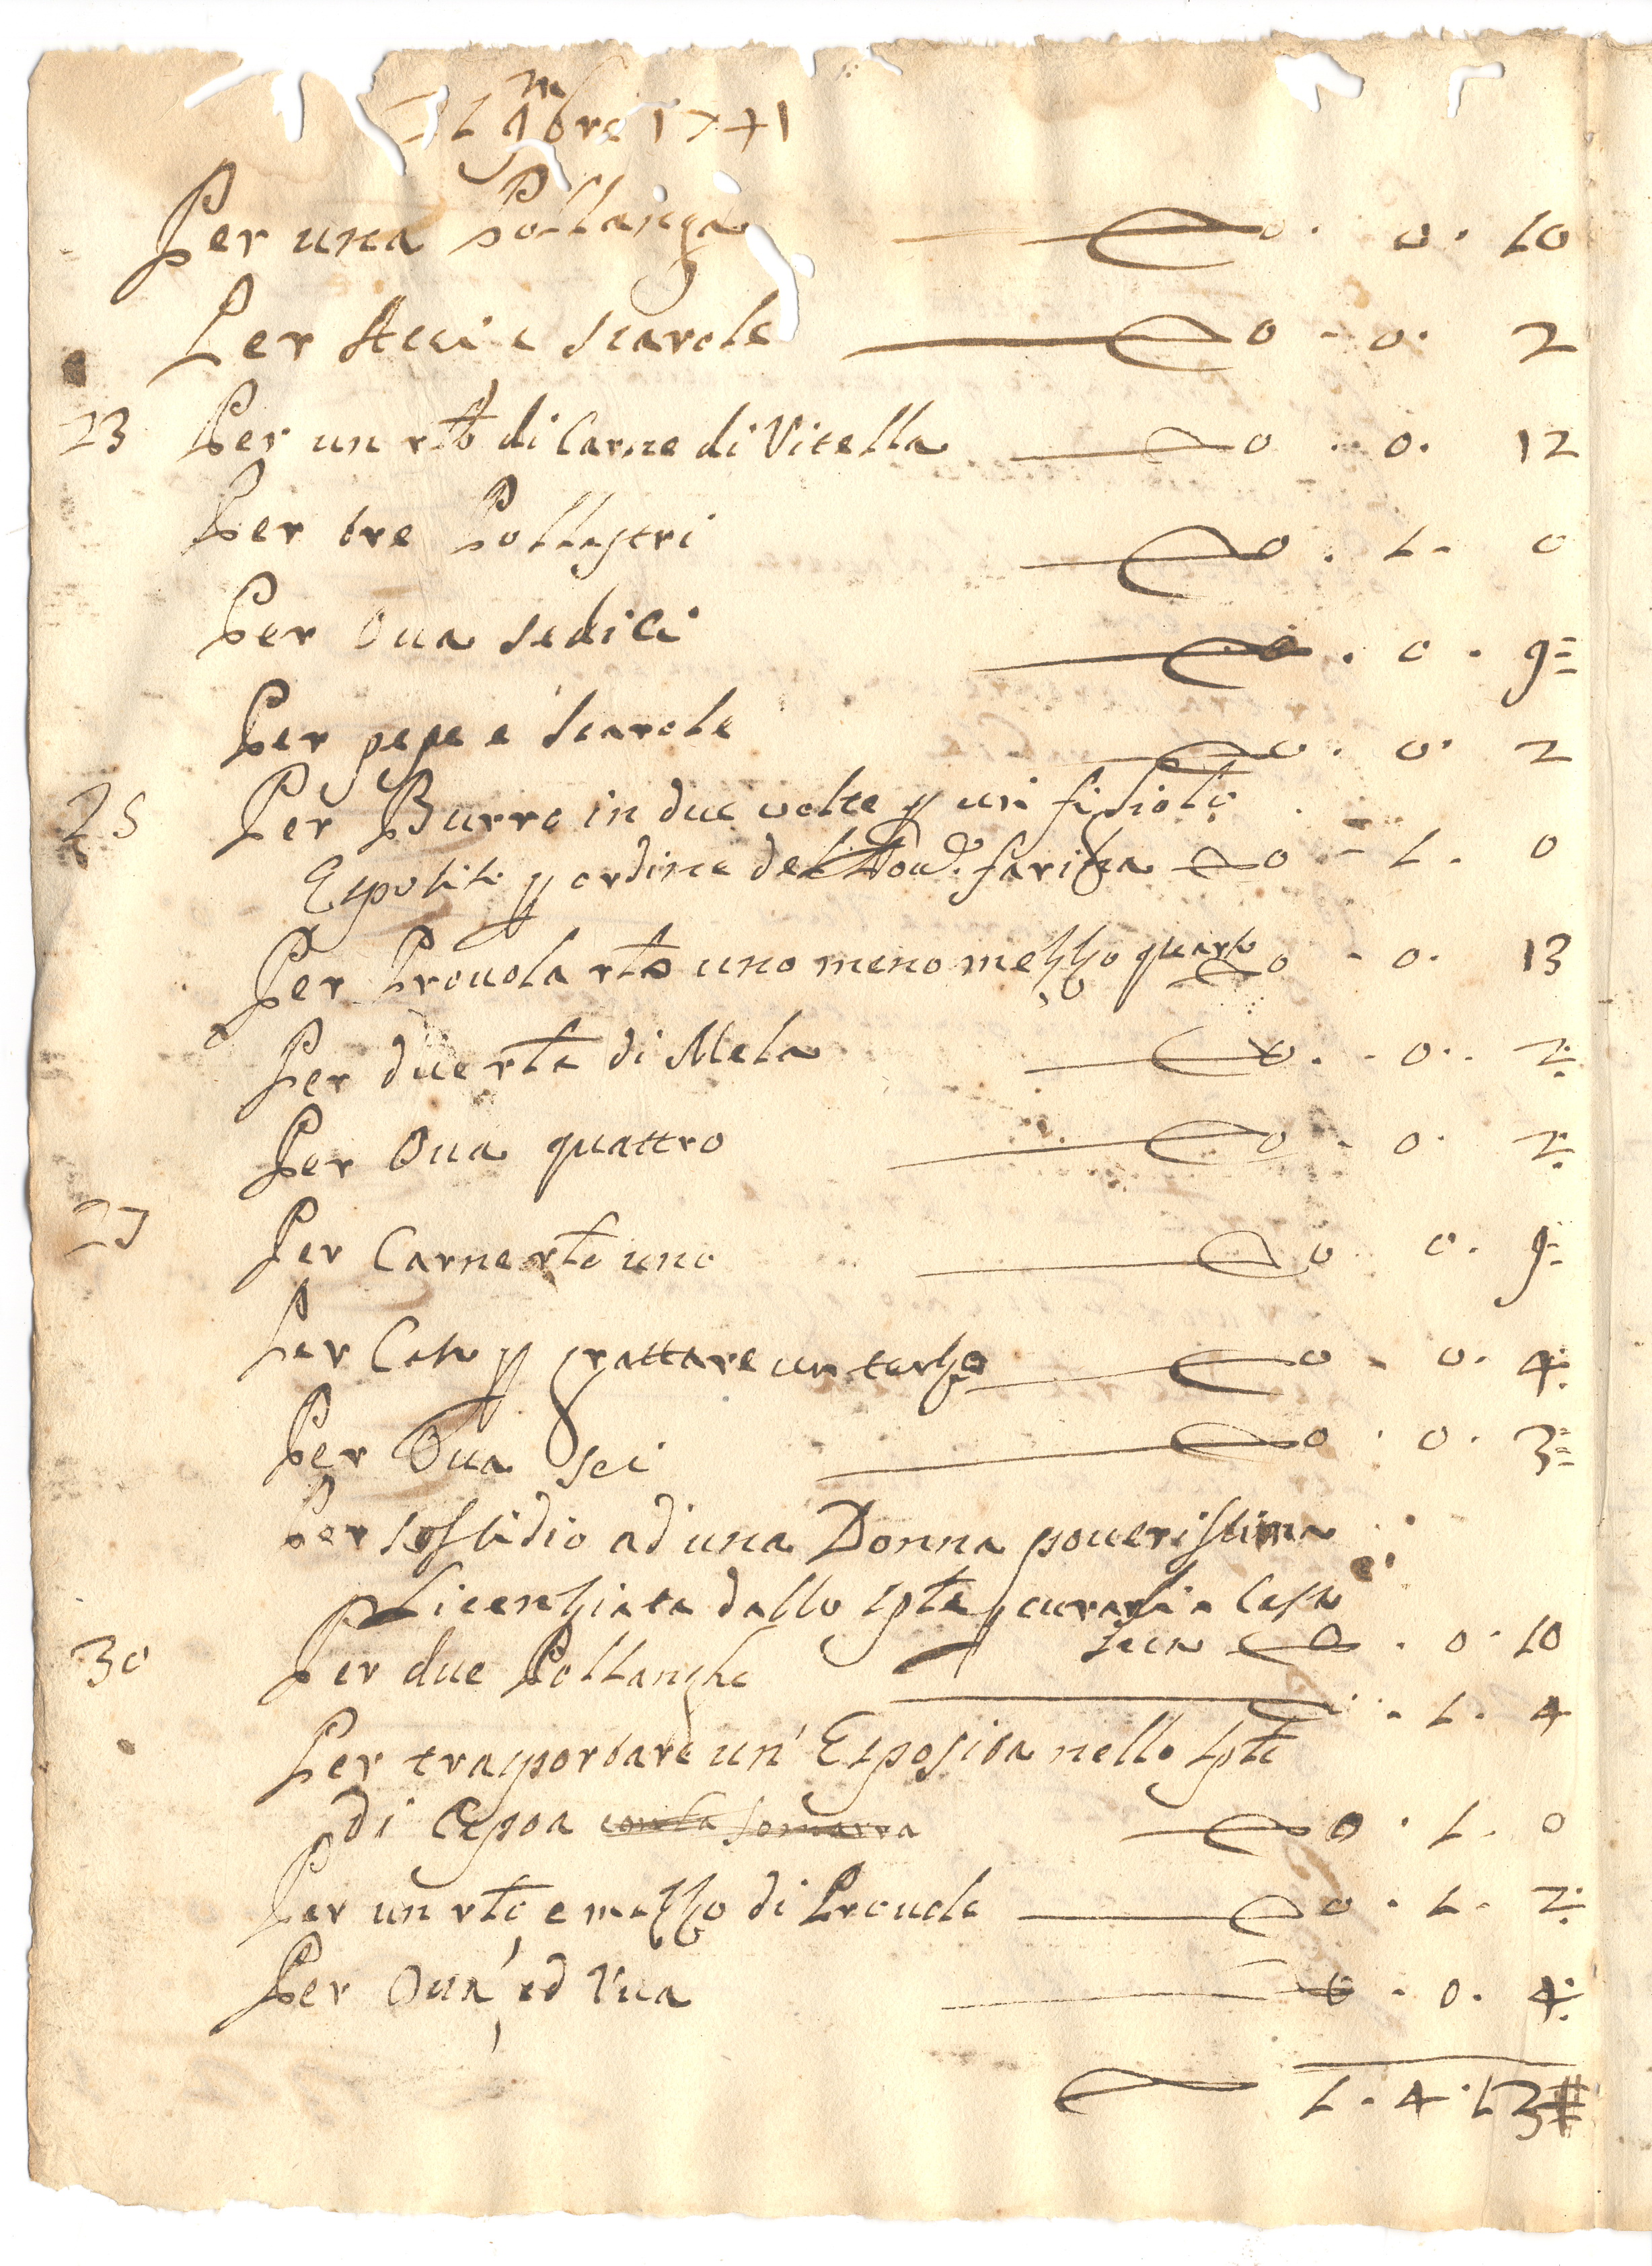 9mbre 1741
Per una Pollanga 0. 0. 10
Per Acci e scarole 0 - 0. 2
23 Per un rto di Carne di Vitella 0 . 0. 12
Per tre Pollastri 0 . 1. 0
Per Oua sedici 0 . 0 . 9=
Per pepe e scarole 0. 0. 2
25 Per Burro in due volte p un figliolo
Esposito p ordine del farina 0 - 1. 0
Per Prouola rto uno meno mezzo quarto 0 - 0. 13
Per due rta di Mela 0. - 0. 2÷
Per Oua quattro 0 - 0. 2÷
27 Per Carne rto uno 0 0. 9=
Per Caso p grattare un terzo 0 - 0. 4÷
Per Oua sei 0 . 0. 3=
Per sossidio ad una Donna pouerissima
Licenziata dallo sple p curarsi a Casa
sua 0 . 0. 10
30 Per due Pollanghe . 1. 4
Per trasportare un' Esposita nello sple
di Capoa con la somarra 0 . 1. 0
Per un rto, e mezzo di Prouola 0 . 1. 2÷
Per Oua, ed Vua 0 . 0. 4÷
1. 4. 13